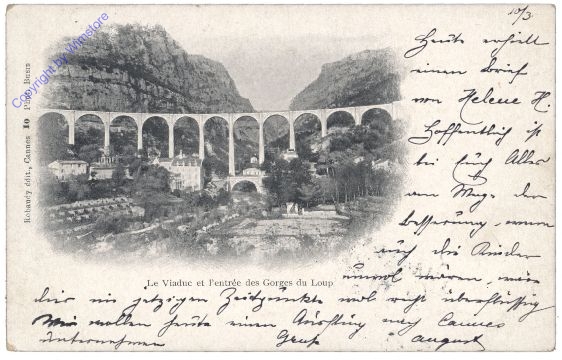 10/3
Heute erhielt
einen Brief
von Helene H.
Hoffentlich ist
bei Euch Alles
am Wege der
Besserung, wenn
auch die Kinder
unwol waren, wäre
dies im jetzigen Zeitpunkte wol nicht überflüssig
Wir wollen heute einen Ausflug nach Cannes
unternehmen Gruß August
Le Viaduc et l'entrée des Gorges du Loup
Robaudy édit., Cannes 10
Copyright by Wimstore